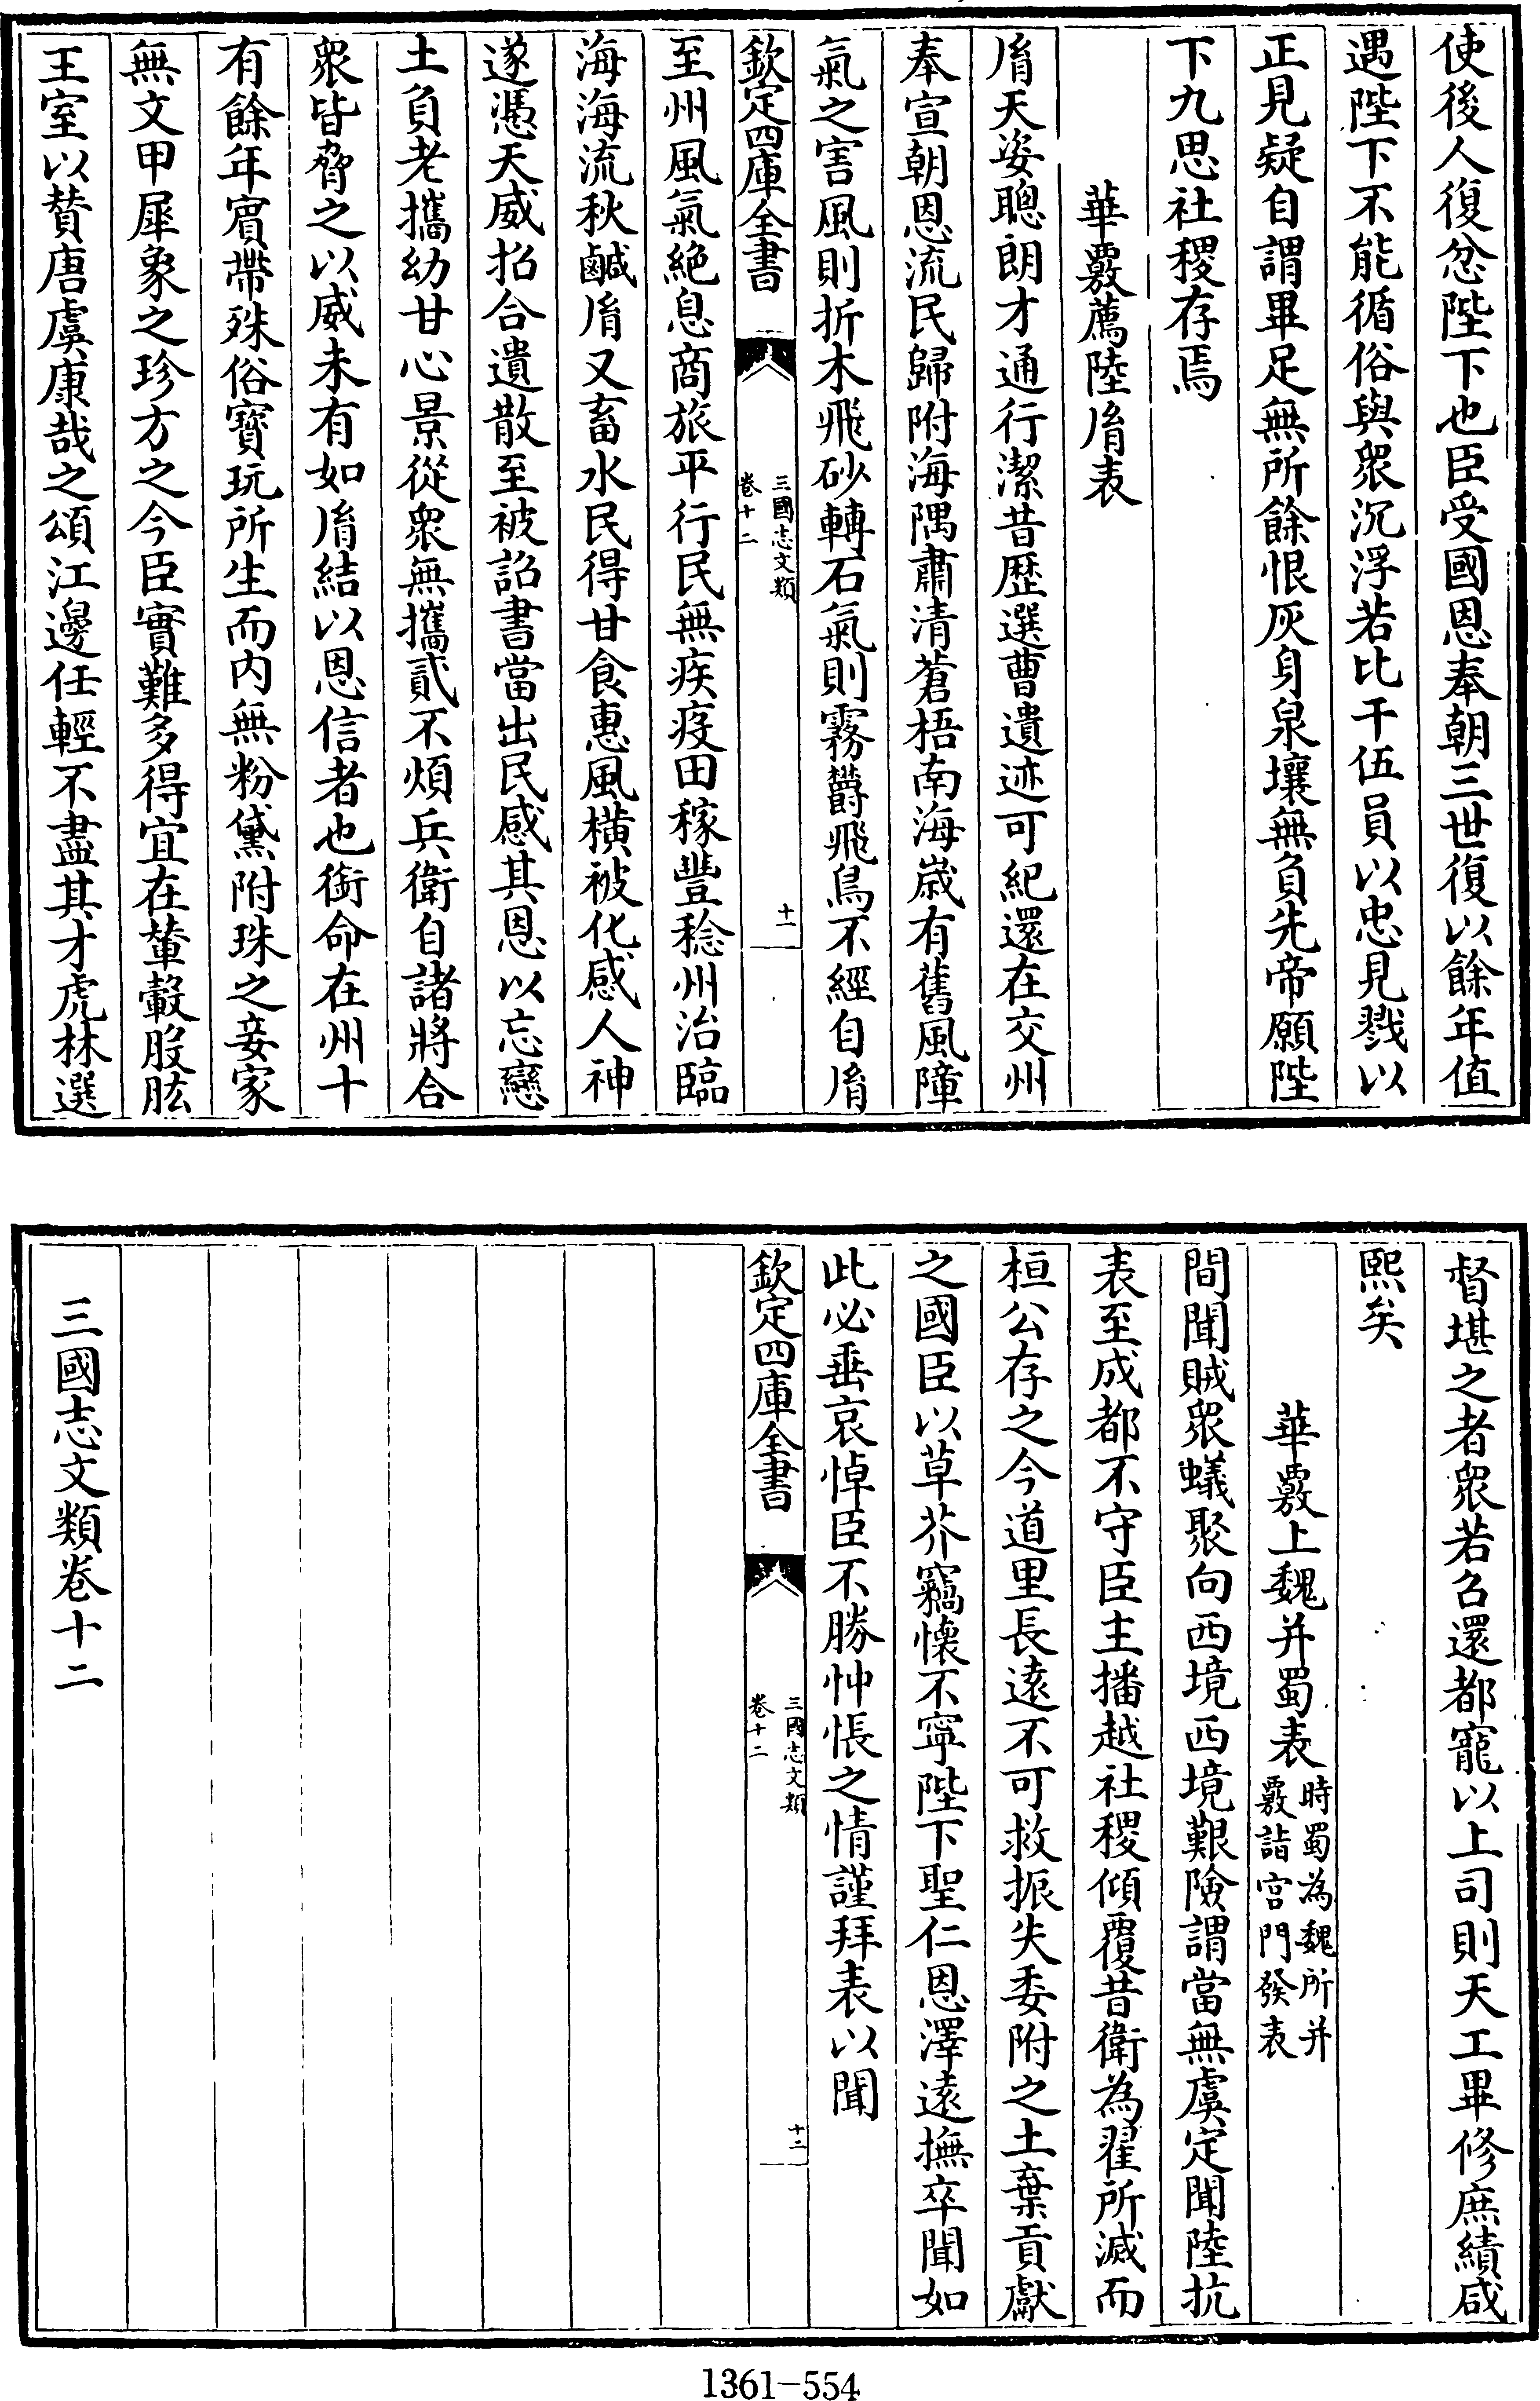 使後人復忿陛下也臣受國恩奉朝三世復以餘年值
遇陛下不能循俗與衆沉浮若比干伍員以忠見戮以
正見疑自謂畢足無所餘恨灰身泉壤無負先帝願陛
下九思社稷存焉
華覈薦陸𦙍表
𦙍天姿聰朗才通行潔昔歴選曹遺迹可紀還在交州
奉宣朝恩流民歸附海隅肅清蒼梧南海嵗有舊風障
氣之害風則折木飛砂轉石氣則霧欝飛鳥不經自𦙍
欽定四庫全書
三國志文類
卷十二
十一
至州風氣絶息商旅平行民無疾疫田稼豐稔州治臨
海海流秋鹹𦙍又畜水民得甘食惠風横被化感人神
遂憑天威招合遺散至被詔書當出民感其恩以忘戀
土負老攜幼甘心景從衆無攜貳不煩兵衛自諸將合
衆皆脅之以威未有如𦙍結以恩信者也銜命在州十
有餘年賓帶殊俗寶玩所生而内無粉黛附珠之妾家
無文甲犀象之珍方之今臣實難多得宜在輦轂股肱
王室以賛唐虞康哉之頌江邊任輕不盡其才虎林選
督堪之者衆若召還都寵以上司則天工畢修庶績咸
熙矣
華覈上魏并蜀表時蜀為魏所并
覈詣宫門發表
間聞賊衆蟻聚向西境西境艱險謂當無虞定聞陸抗
表至成都不守臣主播越社稷傾覆昔衛為翟所滅而
桓公存之今道里長遠不可救振失委附之土棄貢獻
之國臣以草芥竊懷不寧陛下聖仁恩澤遠撫卒聞如
此必垂哀悼臣不勝忡悵之情謹拜表以聞
欽定四庫全書
三國志文類
卷十二
十二
三國志文類卷十二
1361-554